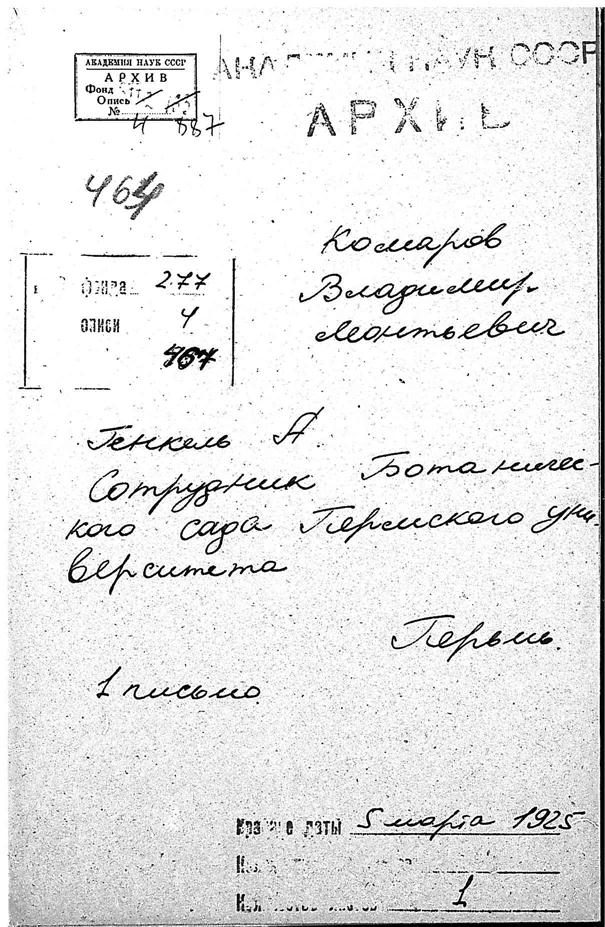 АКАДЕМИЯ НАУК СССР
АРХИВ
Фонд 277
Опись
№
4 887
АКАДЕМИЯ НАУК СССР
АРХИВ
464
Комаров
Владимир
Леонтьевич
фонда 277
описи 4
467
Генкель А.
Сотрудник Ботаничес-
кого сада Пермского уни-
верситета
Пермь.
1 письмо
Крайние даты 5 марта 1925
Количество листов 1